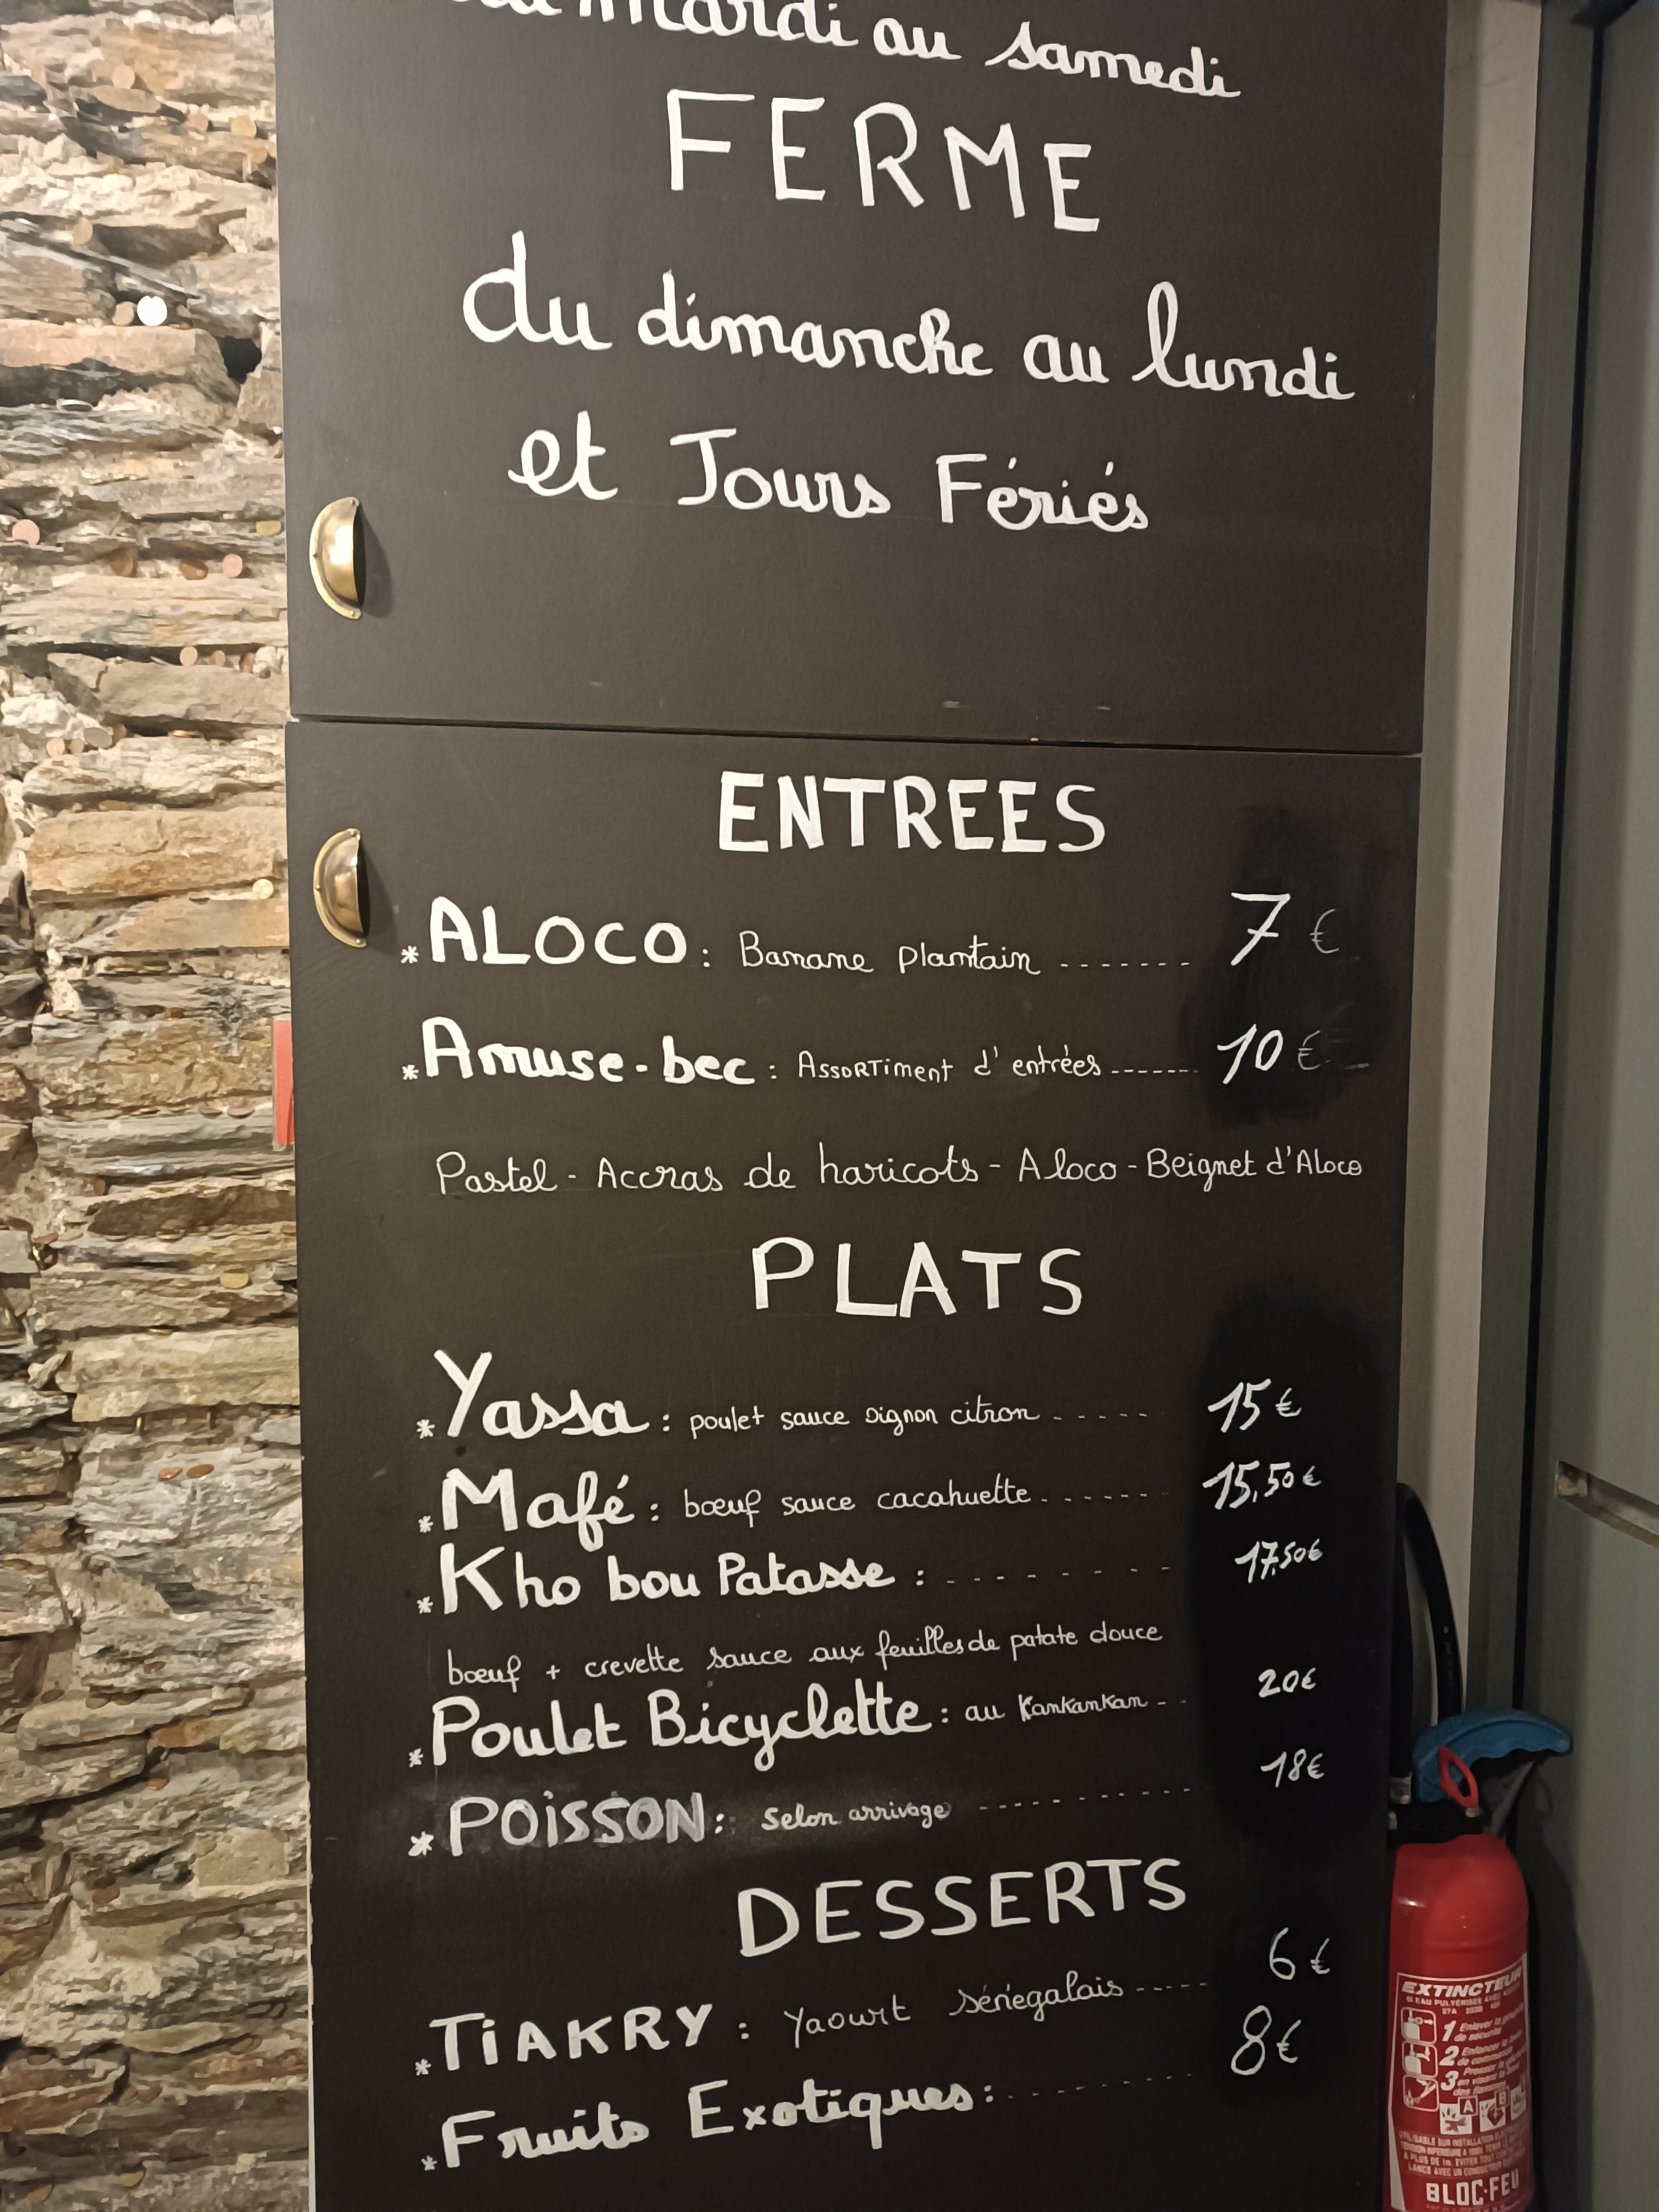 mardi au samedi
FERME
du dimanche au lundi
et Jours Fériés
ENTREES
*ALOCO : Banane plantain ------- 7 €
*Amuse-bec : Assortiment d'entrées ------- 10 €
Pastel - Accras de haricots - Aloco - Beignet d'Aloco
PLATS
*Yassa : poulet sauce oignon citron ----- 15 €
*Mafé : bœuf sauce cacahuette ------ 15,50 €
*Kho bou Patasse : -------- 17,50€
bœuf + crevette sauce aux feuilles de patate douce
*Poulet Bicyclette : au Kankankan -- 20€
*POiSSON : Selon arrivage ----------- 18€
DESSERTS
*TiAKRY : Yaourt sénégalais ----- 6 €
*Fruits Exotiques : ---------- 8€
EXTINCTEUR
1 Enlever la
de sécurité
2 Enfoncer
3 Presser
A
B
BLOC-FEU